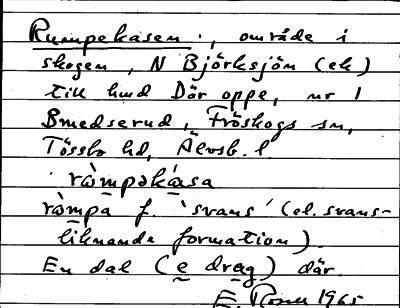 Rumpekasen ., område i
skogen, N Björksjön (ek)
till hmd Där oppe, nr 1
Bmedserud, Fröskogs sn,
Tössbo hd, Älvsb. l.
ràmpəkása
ràmpa f. 'svans' (el. svans-
liknande formation).
En dal (e drag) där.
1965